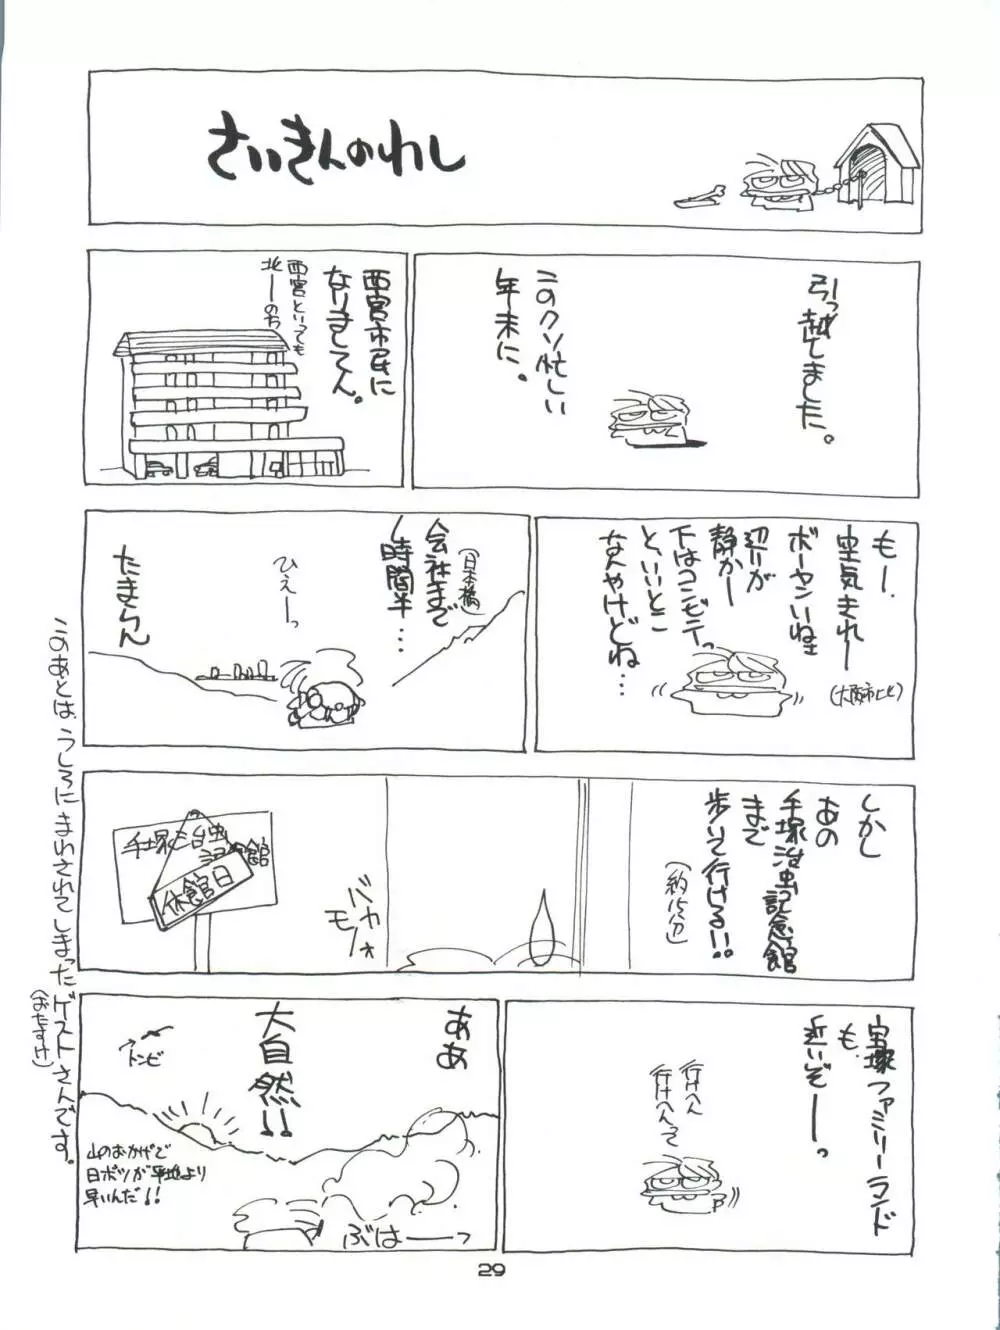 さいきんのわし
引っ越しました。
このクソ忙しい
年末に。
西宮市民に
なりましてん。
西宮といっても
北ーのち
もー、
空気きれー
ボーヤンいねェ
辺りが
静かー
下はコンビニっ
と、いいとこ
なんやけどね…
(大阪市比)
会社まで
(日本橋)
1時間半…
ひえーっ
たまらん
しかし
あの
手塚治虫記念館
まで
歩いて行ける!!
(約15分)
バカ
モノ
手塚治虫
記念館
休館日
宝塚ファミリーランド
も、
近いぞーっ。
行けへん
行けへんて
ああ
大自然!!
トンビ
山のおかげで
日ボツが平地より
早いんだ!!
ぶはーっ
このあとは、うしろにまわされてしまったゲストさんです。
(おたすけ)
29